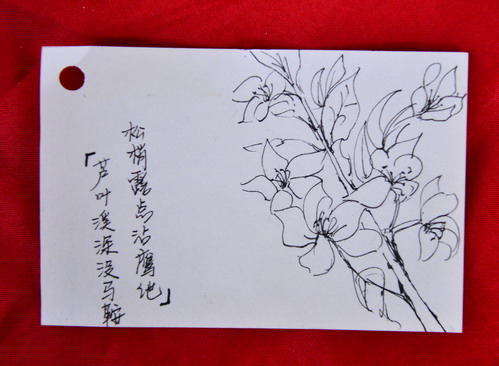 「芦叶溪深没马鞍
松梢露点沾鹰绁」